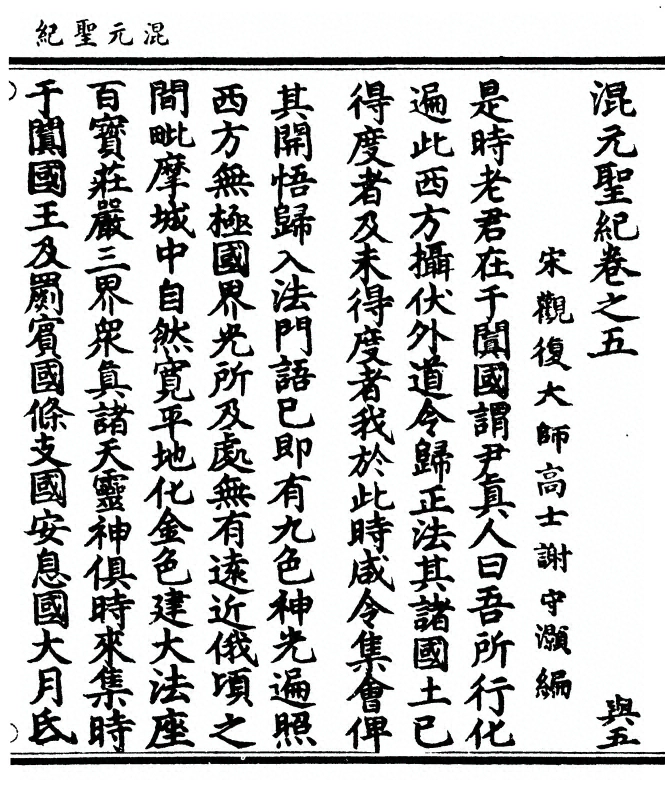 混元聖紀
混元聖紀卷之五
與五
宋觀復大師高士謝守灝編
是時老君在于闐國謂尹眞人曰吾所行化
遍此西方攝伏外道令歸正法其諸國土已
得度者及未得度者我於此時咸令集會俾
其開悟歸入法門語已即有九色神光遍照
西方無極國界光所及處無有遠近俄頃之
間毗摩城中自然寛平地化金色建大法座
百寳莊嚴三界衆眞諸天靈神俱時來集時
于闐國王及罽賓國條支國安息國大月氏